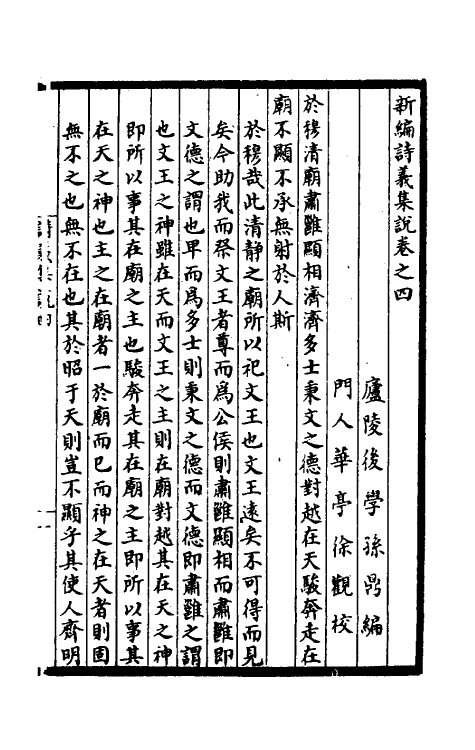 新編詩義集說卷之四
廬陵後學孫鼎編
門人華亭徐觀校
於穆清廟肅雝顯相濟濟多士秉文之德對越在天駿奔走在
廟不顯不承無射於人斯
於穆哉此清静之廟所以祀文王也文王遠矣不可得而見
矣今助我而祭文王者尊而為公侯則肅雝顯相而肅雝即
文德之謂也卑而為多士則秉文之德而文德即肅雝之謂
也文王之神雖在天而文王之主則在廟對越其在天之神
即所以事其在廟之主也駿奔走其在廟之主即所以事其
在天之神也主之在廟者一於廟而已而神之在天者則固
無不之也無不在也其於昭于天則豈不顯乎其使人齊明
詩義集說四
一